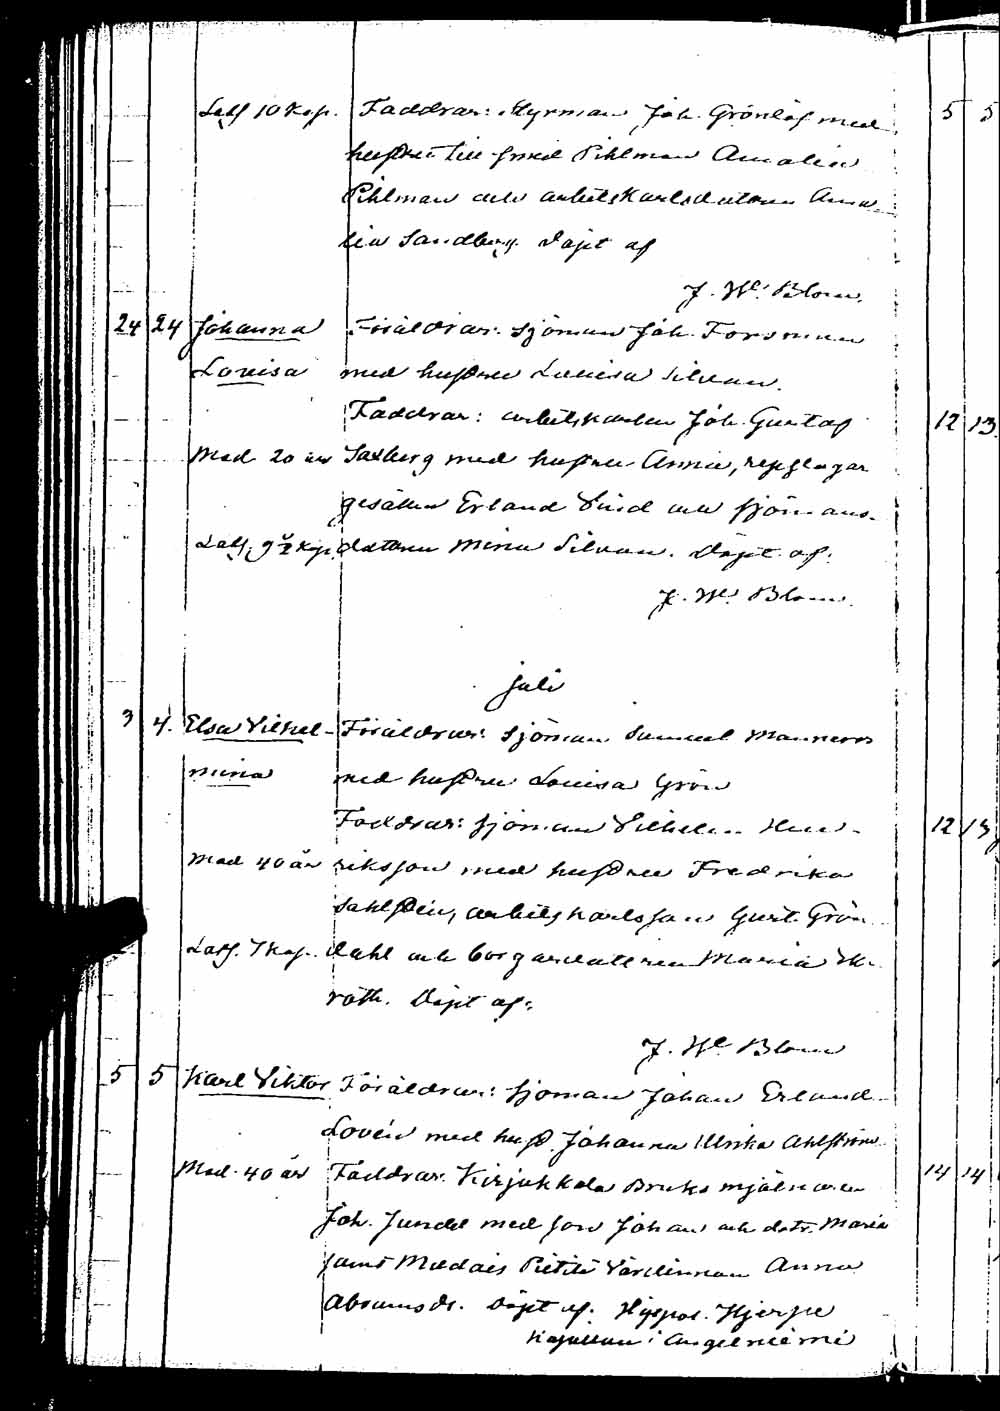 10 Kop. Faddrar: Styrman Joh. Grönlöf med
hustru Pihlman Amalia
Pihlman och arbetskarlsdottren Ama-
lia Sandberg. Döpt af
J. W. Blom.
24 24 Johanna Föräldrar: Sjöman Joh. Forsman
Lovisa med hustru Lovisa Silvan.
Faddrar: arbetskarlen Joh. Gustaf
Mod. 20 år Saxberg med hustru Anna, repslagar
gesällen Erland och sjömans-
9½ Kop. dottren Mina Silvan. Döpt af:
J. W. Blom.
juli
3 4. Elsa Vilhel- Föräldrar: Sjöman Samuel Manneros
mina med hustru Lovisa Grön
Faddrar: sjöman Vilhelm Hen-
Mod. 40 år riksson med hustru Fredrika
Sahlsten, arbetskarlsson Gust. Grön-
7 Kop. dahl och borgaredottren Maria
roth. Döpt af:
J. W. Blom
5 5 Karl Viktor Föräldrar: Sjöman Johan Erland
Lovén med hust. Johanna Ulrika Ahlström
Mod. 40 år Faddrar: Kirjakkala Bruks mjölnaren
Joh. Jundel med son Johan och dotr. Maria
samt Madais Pietilä Värdinnan Anna
Abramsdr. Döpt af: Hjerpe
Kapellan i Angelniemi
5 5
12 13
12 13
14 14